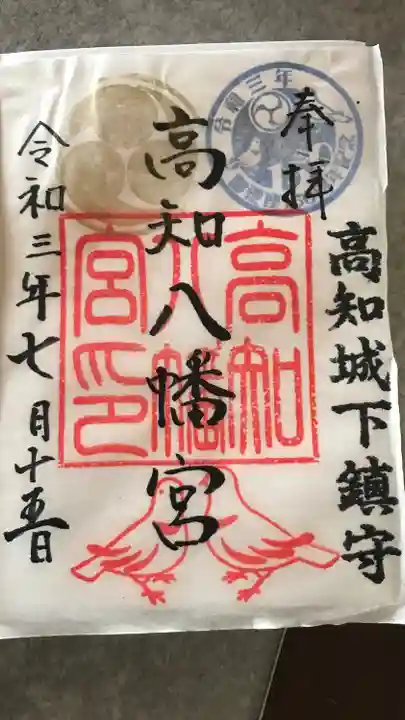 奉拝
高知城下鎮守
高知八幡宮
令和三年七月十五日
高知
八幡
宮印
令和三年